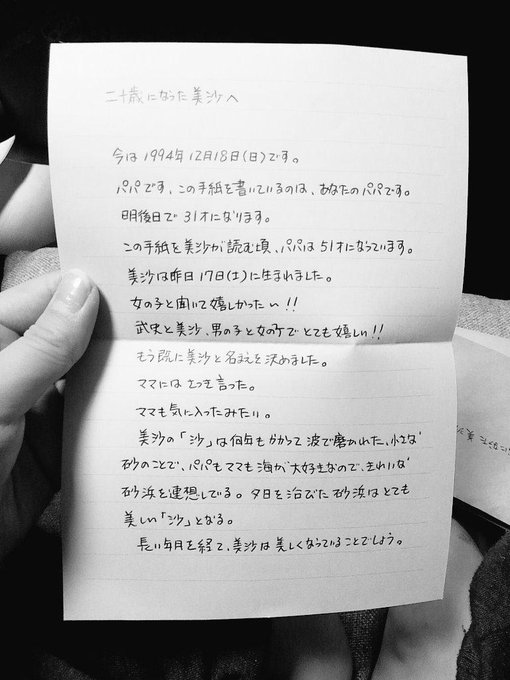 二十歳になった美沙へ
今は1994年12月18日(日)です。
パパです、この手紙を書いているのは、あなたのパパです。
明後日で31才になります。
この手紙を美沙が読む頃、パパは51才になっています。
美沙は昨日17日(土)に生まれました。
女の子と聞いて嬉しかったい!!
武史と美沙、男の子と女の子でとても嬉しい!!
もう既に美沙と名まえを決めました。
ママにはさっき言った。
ママも気に入ったみたい。
美沙の「沙」は何年もかかって波で磨かれた、小さな
砂のことで、パパもママも海が大好きなので、きれいな
砂浜を連想してる。夕日を浴びた砂浜はとても
美しい「沙」となる。
長い年月を経て、美沙は美しくなっていることでしょう。
になった美沙